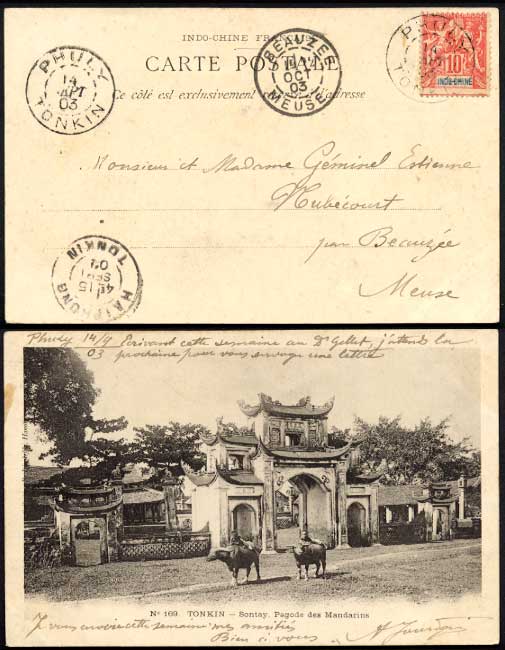 INDO-CHINE FRANÇAISE
CARTE POSTALE
Ce côté est exclusivement réservé à l'adresse
PHULY
14
SEPT
03
TONKIN
BEAUZÉE
OCT
03
MEUSE
PHULY
TONKIN
10
INDO-CHINE
Monsieur et Madame Géminel Estienne
Nubécourt
par Beauzée
Meuse
HAIPHONG
15
SEPT
03
TONKIN
Phuly 14/9 Ecrivant cette semaine au Dr Gellet, j'attends la
03 prochaine pour vous envoyer une lettre
Nº 169. TONKIN – Sontay. Pagode des Mandarins
Je vous envoie cette semaine mes amitiés
Bien à vous